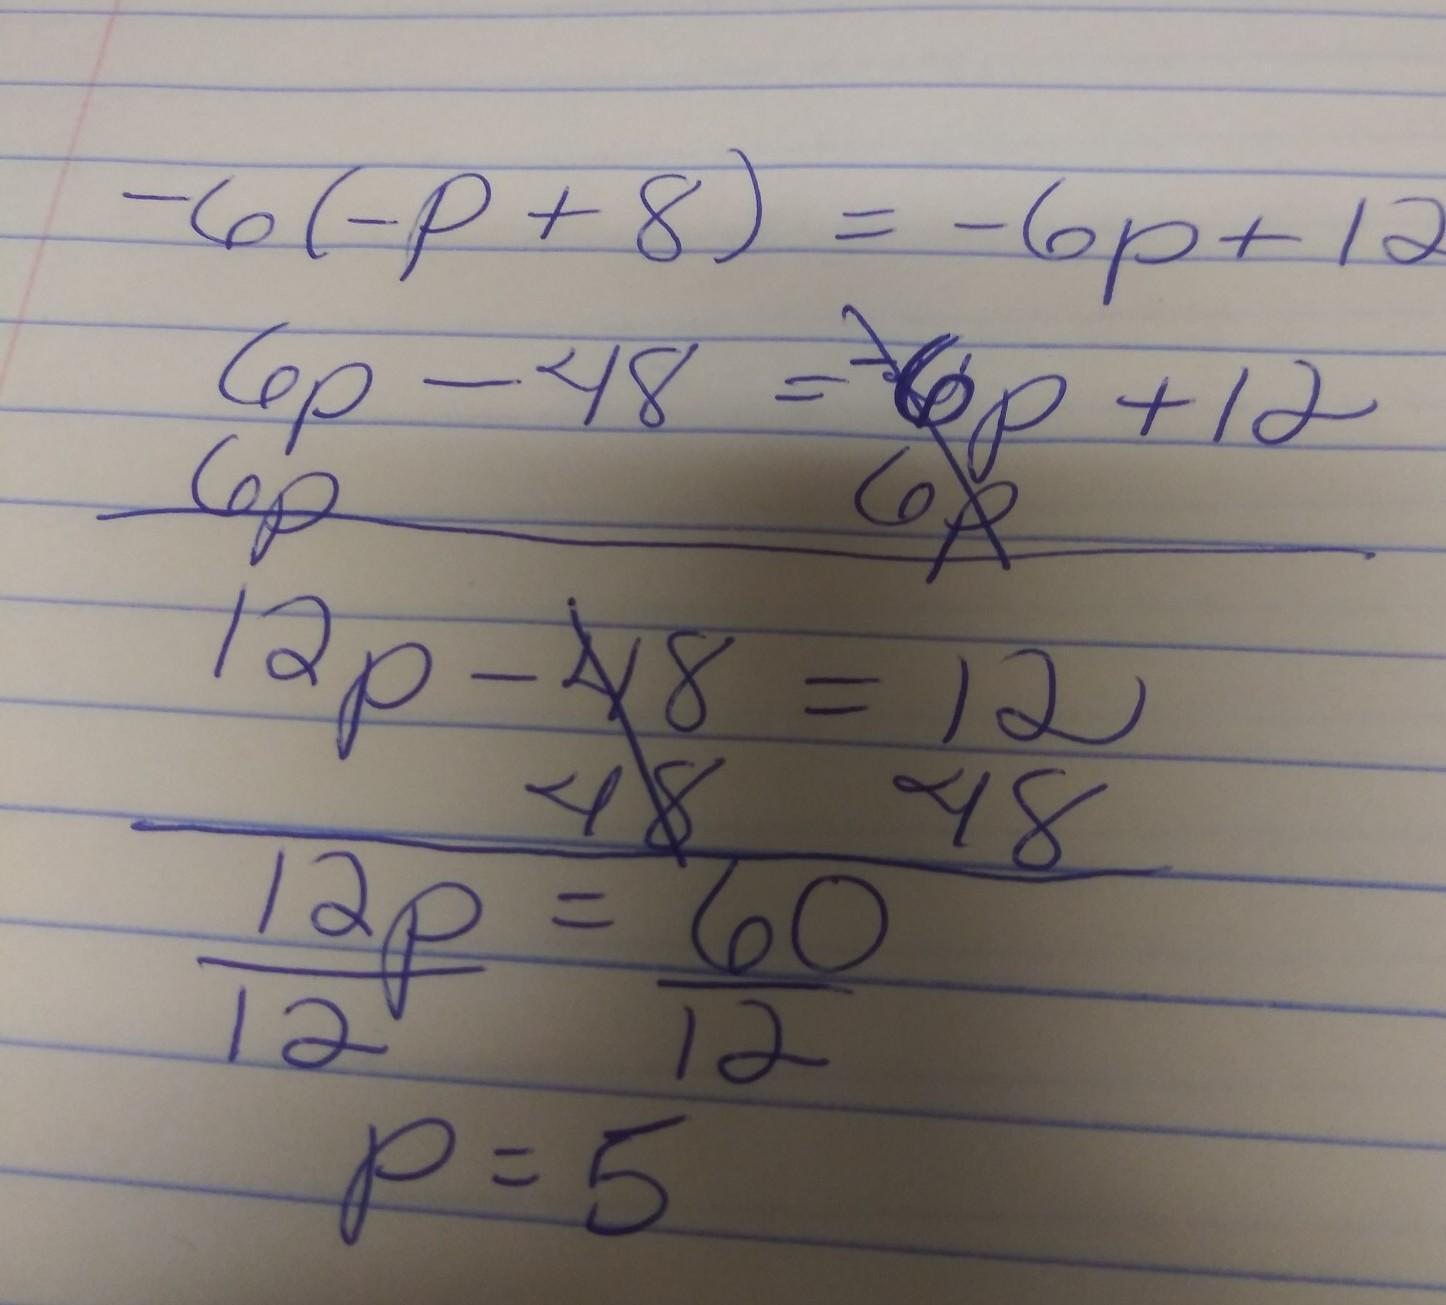 -6(-p + 8) = -6p + 12
6p - 48 = -6p + 12
6p 6p
12p - 48 = 12
48 48
12p = 60
12 12
p = 5